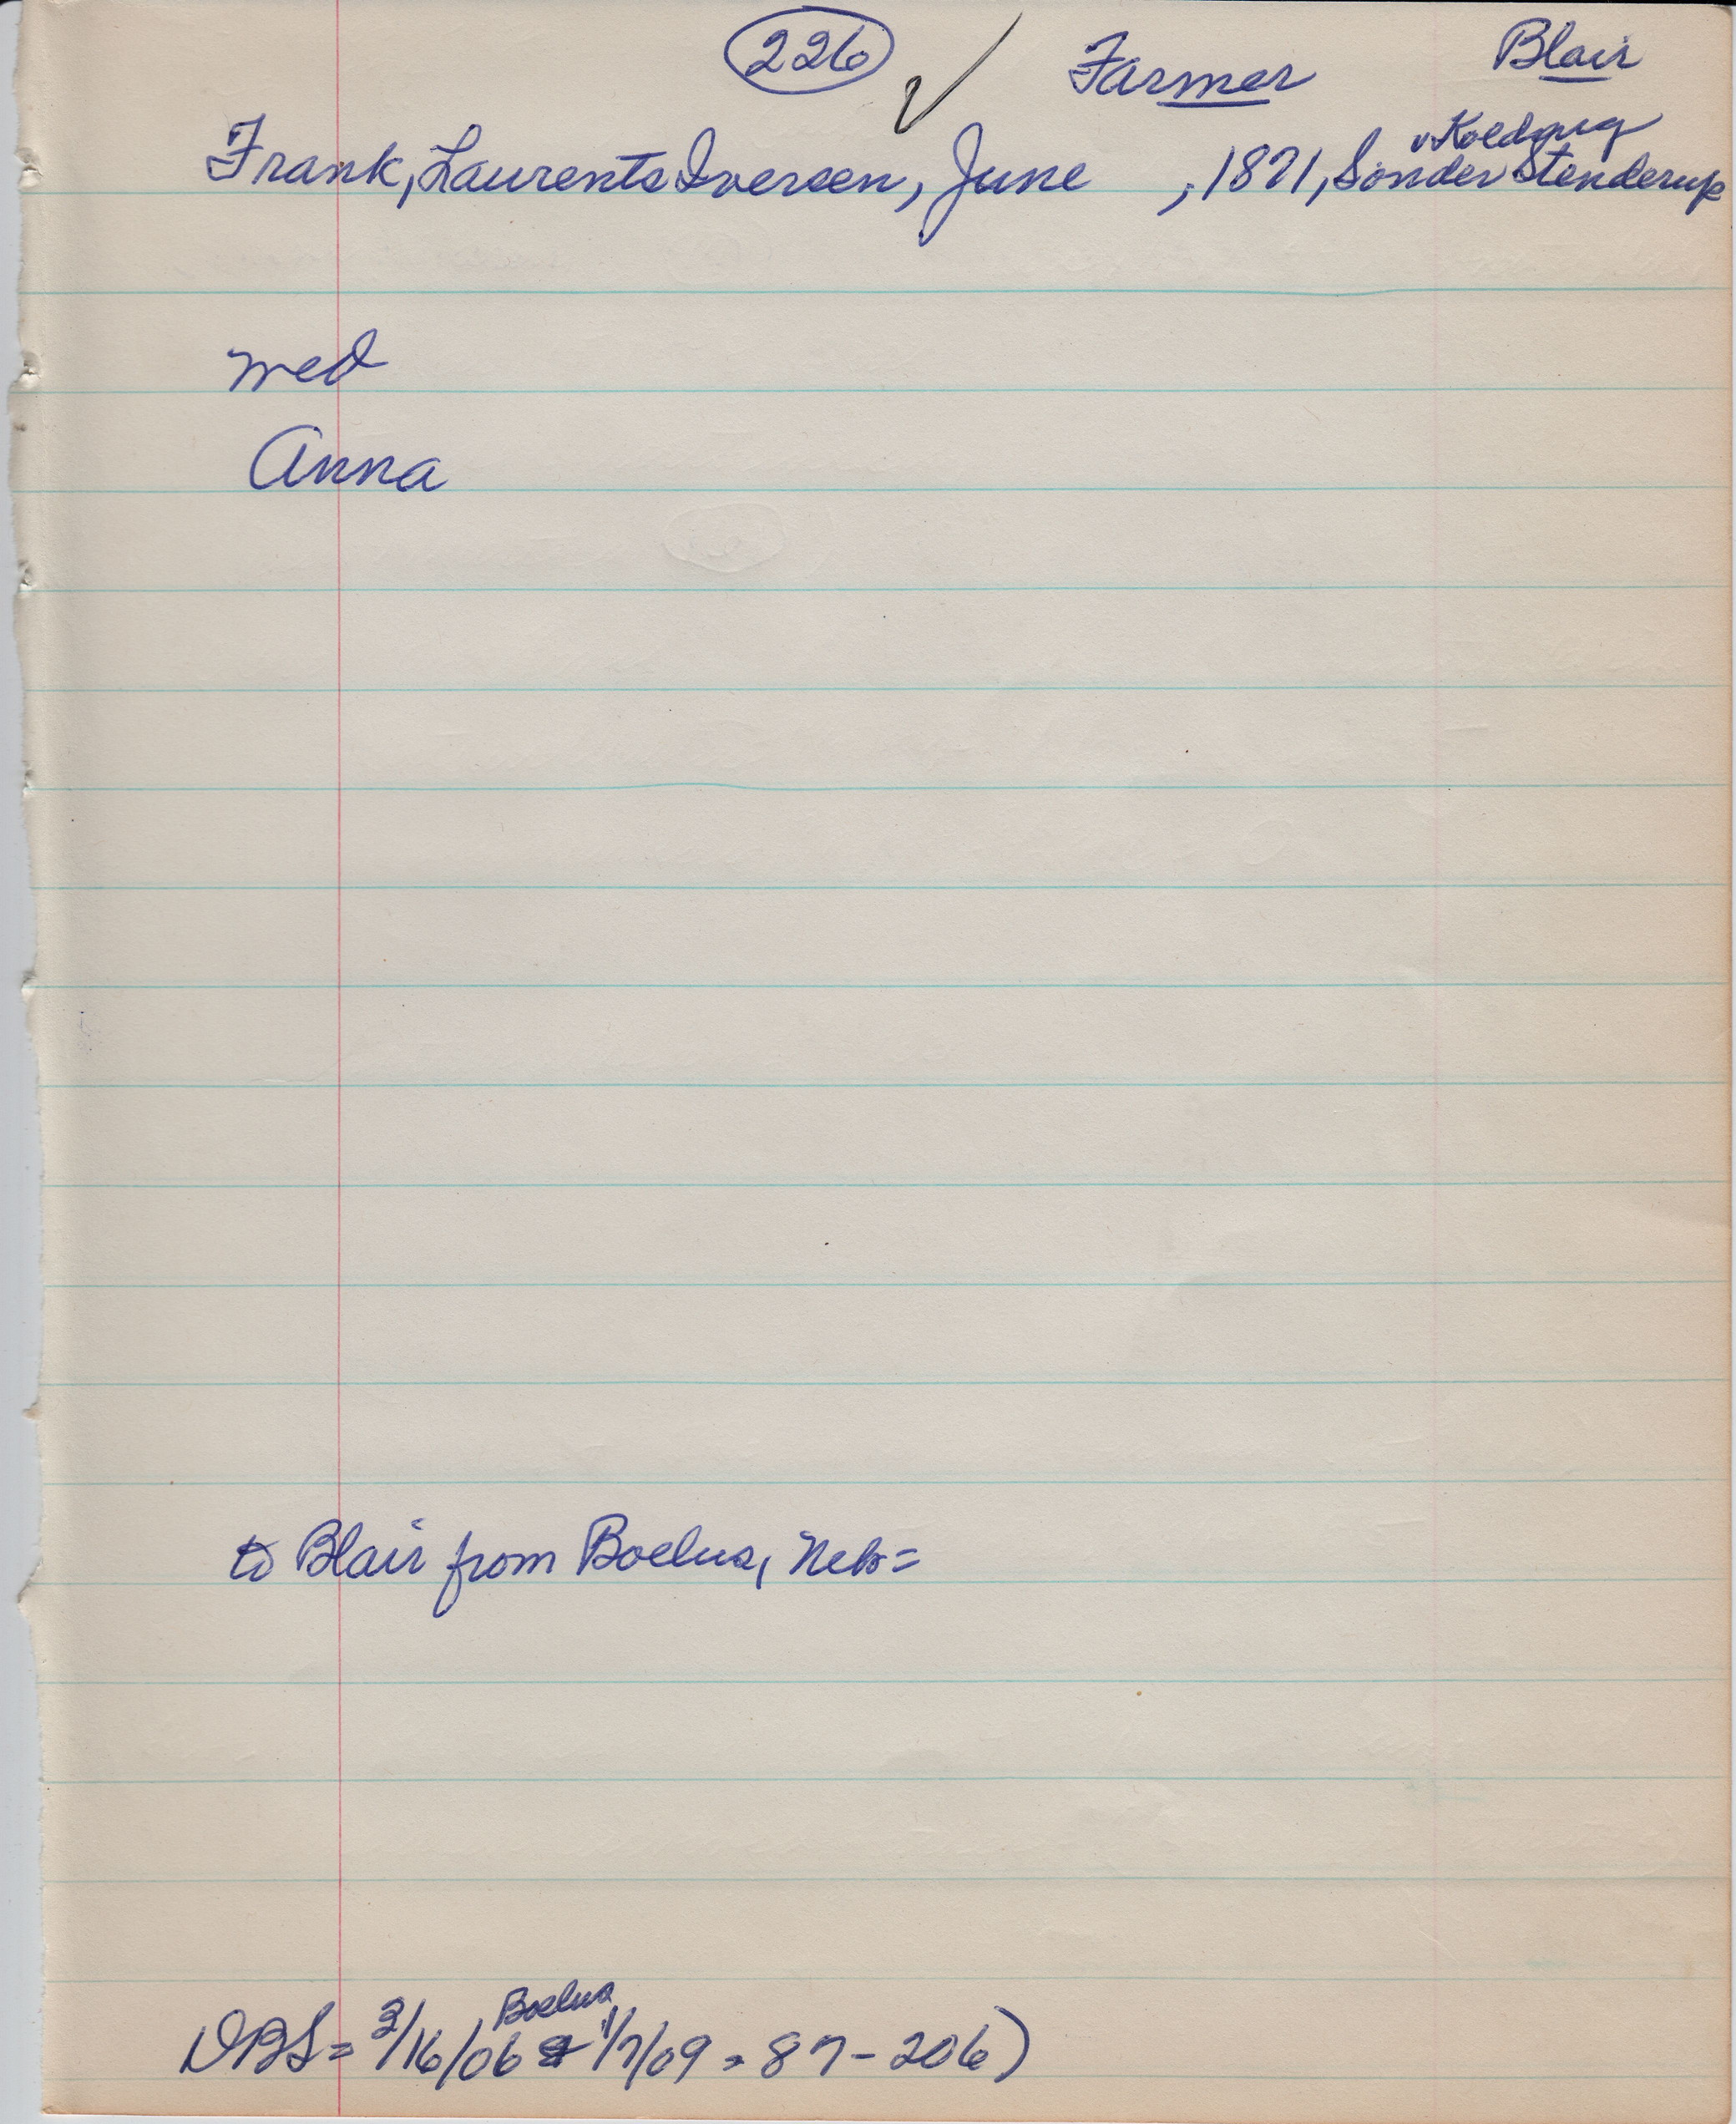 226 ✓ Farmer Blair
v Kolding
Frank, Laurents Iversen, June , 1871, Sonder Stenderup
med
Anna
to Blair from Boelus, Neb=
Boelus
DBS= 3/16/06 1/7/09 = 87-206)